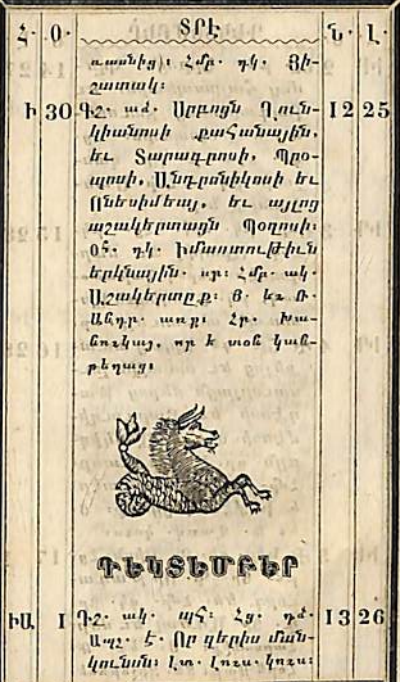 Հ. Օ. ՏՐԷ Ն. Լ.
ռասնից)։ Հմբ. դկ. Յի-
շատակ։
Ի 30 Գշ. ած. Սրբոցն Ղուն- 12 25
կիանոսի քահանային,
եւ Տարագրոսի, Պրո-
պոսի, Անդրոնիկոսի եւ
Ոնեսիմեայ, եւ այլոց
աշակերտացն Պօղոսի։
Օհ. դկ. Իմաստութիւն
երկնային. սր։ Հմբ. ակ.
Աշակերտըք։ Յ. եւ Ռ.
Անդր. առք։ Հր. Խա-
նուկայ, որ է տօն կան-
թեղաց։
ԴԵԿՏԵՄԲԵՐ
ԻԱ 1 Դշ. ակ. պհ։ Հց. դձ. 13 26
Առչ. Է. Որ զերիս ման-
կունսն։ Լտ. Լուս. կուս։